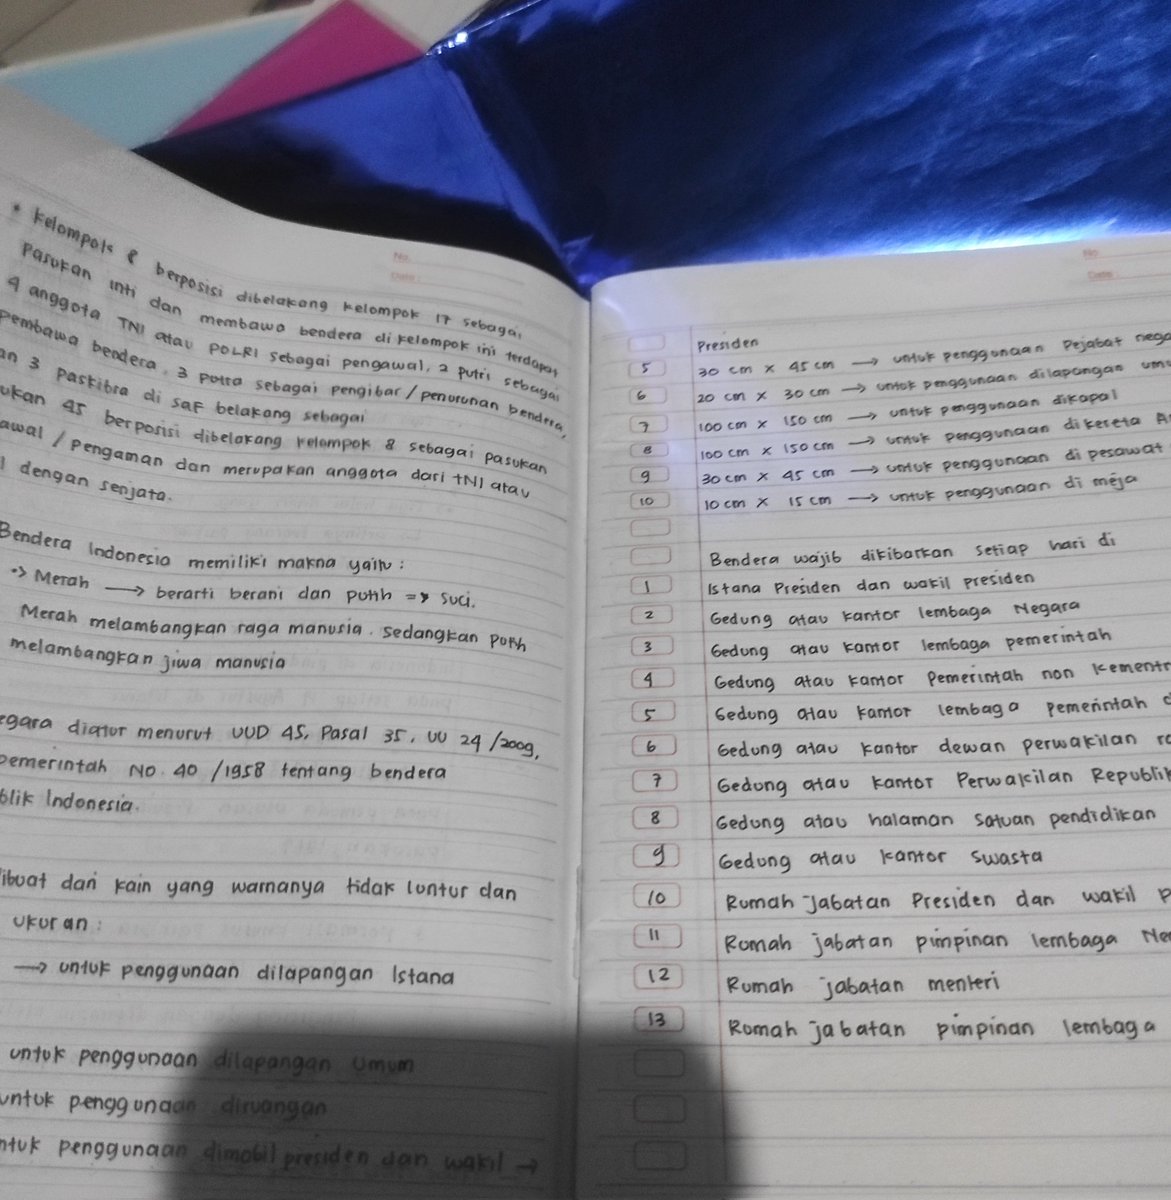 * Kelompok 8 berposisi dibelakang kelompok 17 sebagai
Pasukan inti dan membawa bendera di kelompok ini terdapat
9 anggota TNI atau POLRI sebagai pengawal, 2 putri sebagai
pembawa bendera, 3 putra sebagai pengibar / penurunan bendera,
an 3 paskibra di saf belakang sebagai
ukan 45 berposisi dibelakang kelompok 8 sebagai pasukan
awal / pengaman dan merupakan anggota dari TNI atau
dengan senjata.
Bendera Indonesia memiliki makna yaitu :
Merah → berarti berani dan putih => suci.
Merah melambangkan raga manusia. Sedangkan putih
melambangkan jiwa manusia
egara diatur menurut UUD 45, Pasal 35, UU 24 /2009,
pemerintah No. 40 /1958 tentang bendera
blik Indonesia.
ibuat dari kain yang warnanya tidak luntur dan
ukuran :
→ untuk penggunaan dilapangan Istana
untuk penggunaan dilapangan umum
untuk penggunaan diruangan
ntuk penggunaan dimobil presiden dan wakil →
No.
Date :
No
Date
Presiden
5 30 cm x 45 cm → untuk penggunaan Pejabat nega
6 20 cm x 30 cm → untuk penggunaan dilapangan um
7 100 cm x 150 cm → untuk penggunaan dikapal
8 100 cm x 150 cm → untuk penggunaan dikereta A
9 30 cm x 45 cm → untuk penggunaan di pesawat
10 10 cm x 15 cm → untuk penggunaan di meja
Bendera wajib dikibarkan setiap hari di
1 Istana Presiden dan wakil presiden
2 Gedung atau kantor lembaga Negara
3 Gedung atau kantor lembaga pemerintah
4 Gedung atau kantor Pemerintah non kementr
5 Gedung atau kantor lembaga pemerintah d
6 Gedung atau kantor dewan perwakilan ra
7 Gedung atau kantor Perwakilan Republik
8 Gedung atau halaman satuan pendidikan
9 Gedung atau kantor swasta
10 Rumah Jabatan Presiden dan wakil p
11 Rumah jabatan pimpinan lembaga Ne
12 Rumah jabatan menteri
13 Rumah jabatan pimpinan lembaga